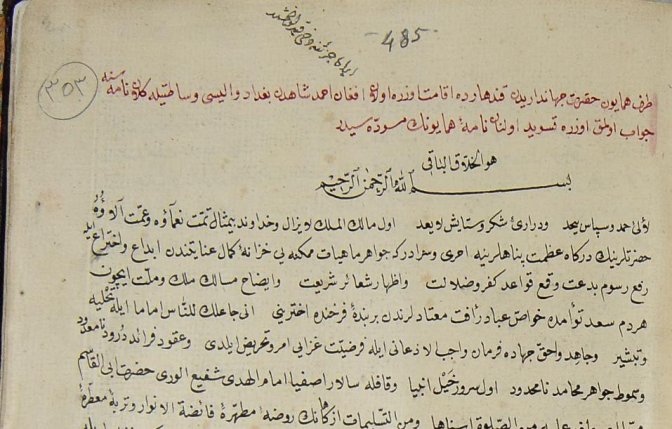 485
٣٥٣
طرف همايون حضرت جهانداريدن قندهارده اقامت اوزره اولان افغان احمد شاهدن بغداد واليسى وساطتيله كلان نامه سنه
جواب اولمق اوزره تسويد اولنان نامهٔ همايونك مسوده سيدر
هو الخلاق الباقى
بسم الله الرحمن الرحيم
لآلئ حمد وسپاس بيحد ودرارئ شكر وستايش لايعد اول مالك الملك لايزال وخداوند بيمثال تمت نعماؤه وعمت آلاؤه
حضرتلرينك دركاه عظمت پناهلرينه احرى وسزادركه جواهر ماهيات ممكنه يى خزانهٔ كمال عنايتندن ابداع واختراع ايله
رفع رسوم بدعت وقع قواعد كفر وضلالت واظهار شعائر شريعت وايضاح مسالك ملك وملت ايچون
هردم سعد توأمده خواص عباد رأفت معتادلرندن بر بندهٔ فرخنده اخترينى انى جاعلك للناس اماما ايله تحليه
وتبشير وجاهد واحق جهاده فرمان واجب الاذعانى ايله فرضيت غزايى امر وتحريض ايلدى وعقود فرائد درود نامعدود
وسموط جواهر محامد نامحدود اول سرور خيل انبيا وقافله سالار اصفيا امام الهدى شفيع الورى حضرت ابى القاسم
ومن التسليمات ازكاهانك روضهٔ مطهرهٔ فائضة الانوار وتربهٔ معطرهٔ